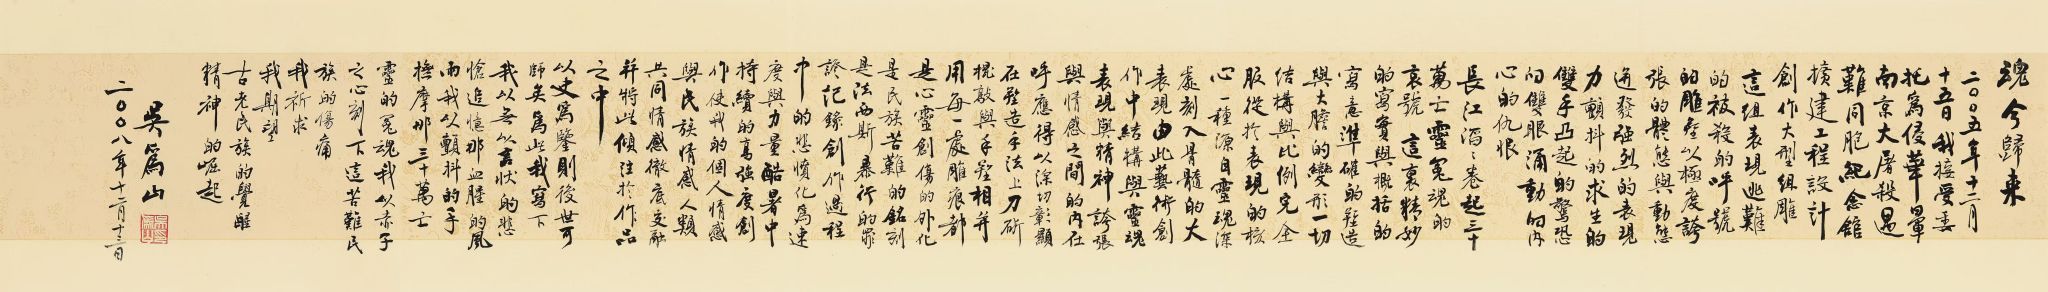 魂兮歸來
二〇〇五年十二月
十五日我接受委
托爲侵華日軍
南京大屠殺遇
難同胞紀念館
擴建工程設計
創作大型組雕
這組表現逃難
的被殺的呼號
的雕塑以極度誇
張的體態與動態
迸發強烈的表現
力顫抖的求生的
雙手凸起的驚恐
的雙眼涌動的内
心的仇恨
長江滔滔卷起三十
萬亡靈冤魂的
哀號 這裏精妙
的寫實與概括的
寫意準確的塑造
與大膽的變形一切
結構與比例完全
服從於表現的核
心一種源自靈魂深
處刻入骨髓的大
表現由此藝術創
作中結構與靈魂
表現與精神誇張
與情感之間的内在
呼應得以深切彰顯
在塑造手法上刀砍
棍敲與手塑相并
用每一處雕痕都
是心靈創傷的外化
是民族苦難的銘刻
是法西斯暴行的罪
證記錄創作過程
中的悲憤化爲速
度與力量酷暑中
持續的高強度創
作使我的個人情感
與民族情感人類
共同情感徹底交融
并將此傾注於作品
之中
以史爲鑒則後世可
師矣爲此我寫下
我以無以言狀的悲
愴追憶那血腥的風
雨我以顫抖的手
撫摩那三十萬亡
靈的冤魂我以赤子
之心刻下這苦難民
族的傷痛
我祈求
我期望
古老民族的覺醒
精神的崛起
吳爲山
二〇〇八年十二月十三日